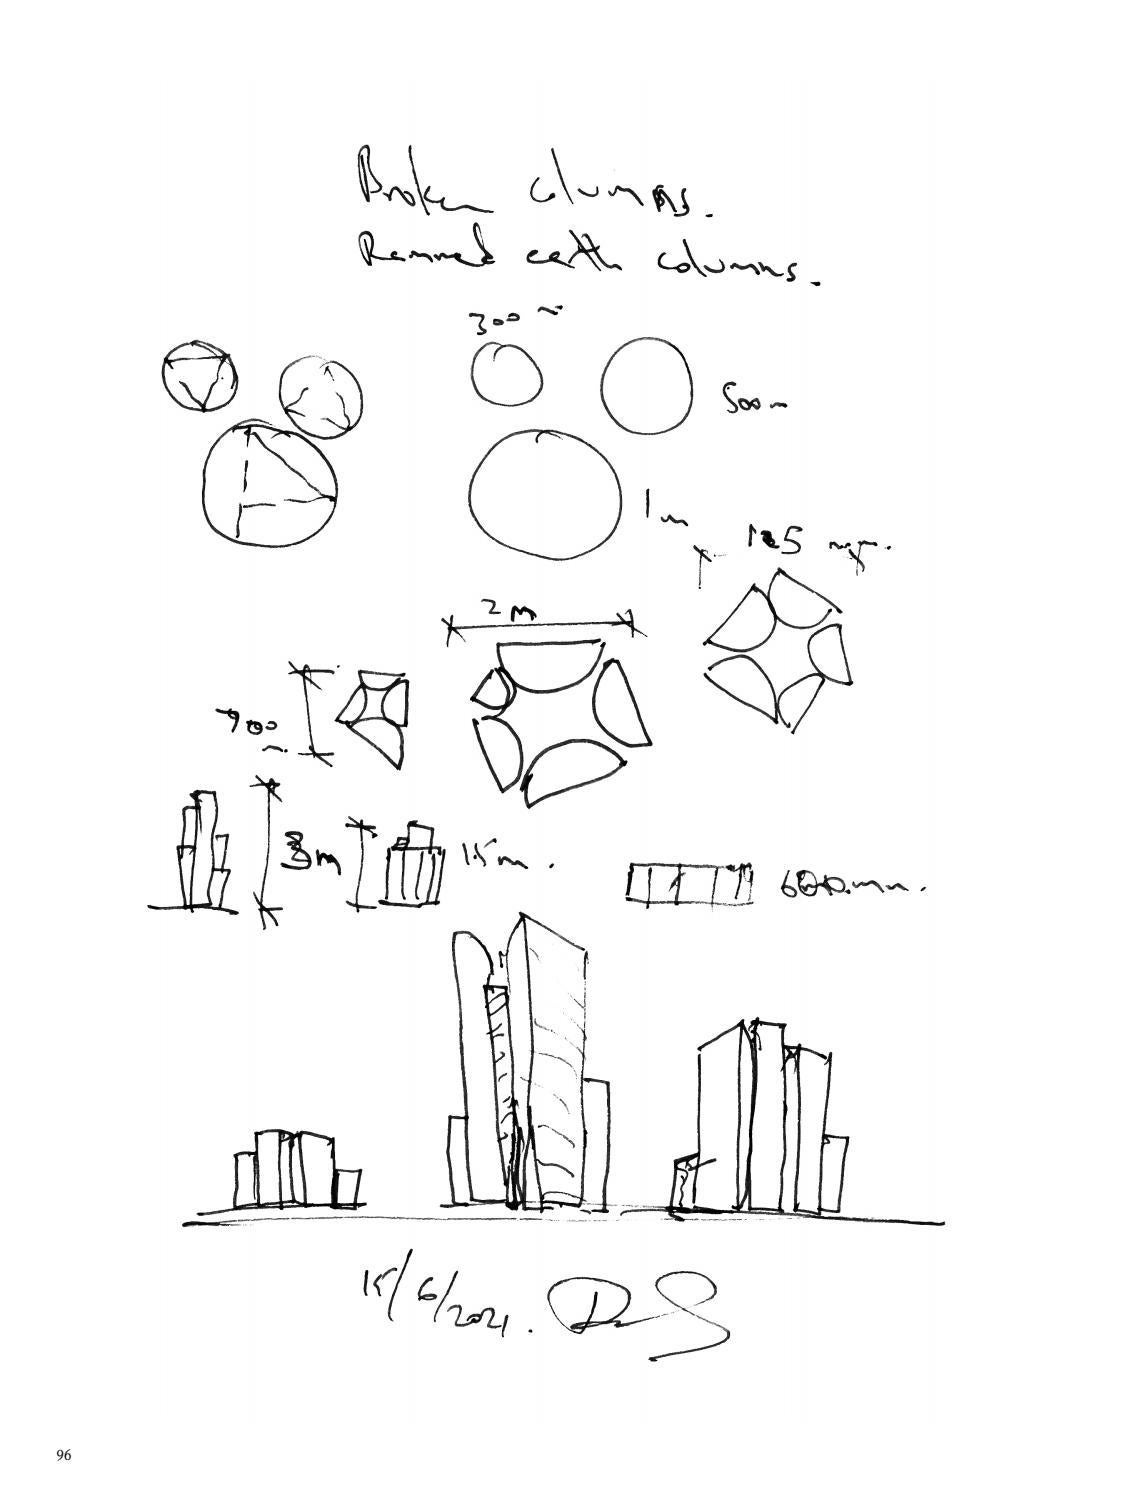 Broken columns.
Rammed earth columns.
300
500
1m
2m
900
3m
1.5m.
600.mm.
15/6/2021.
96